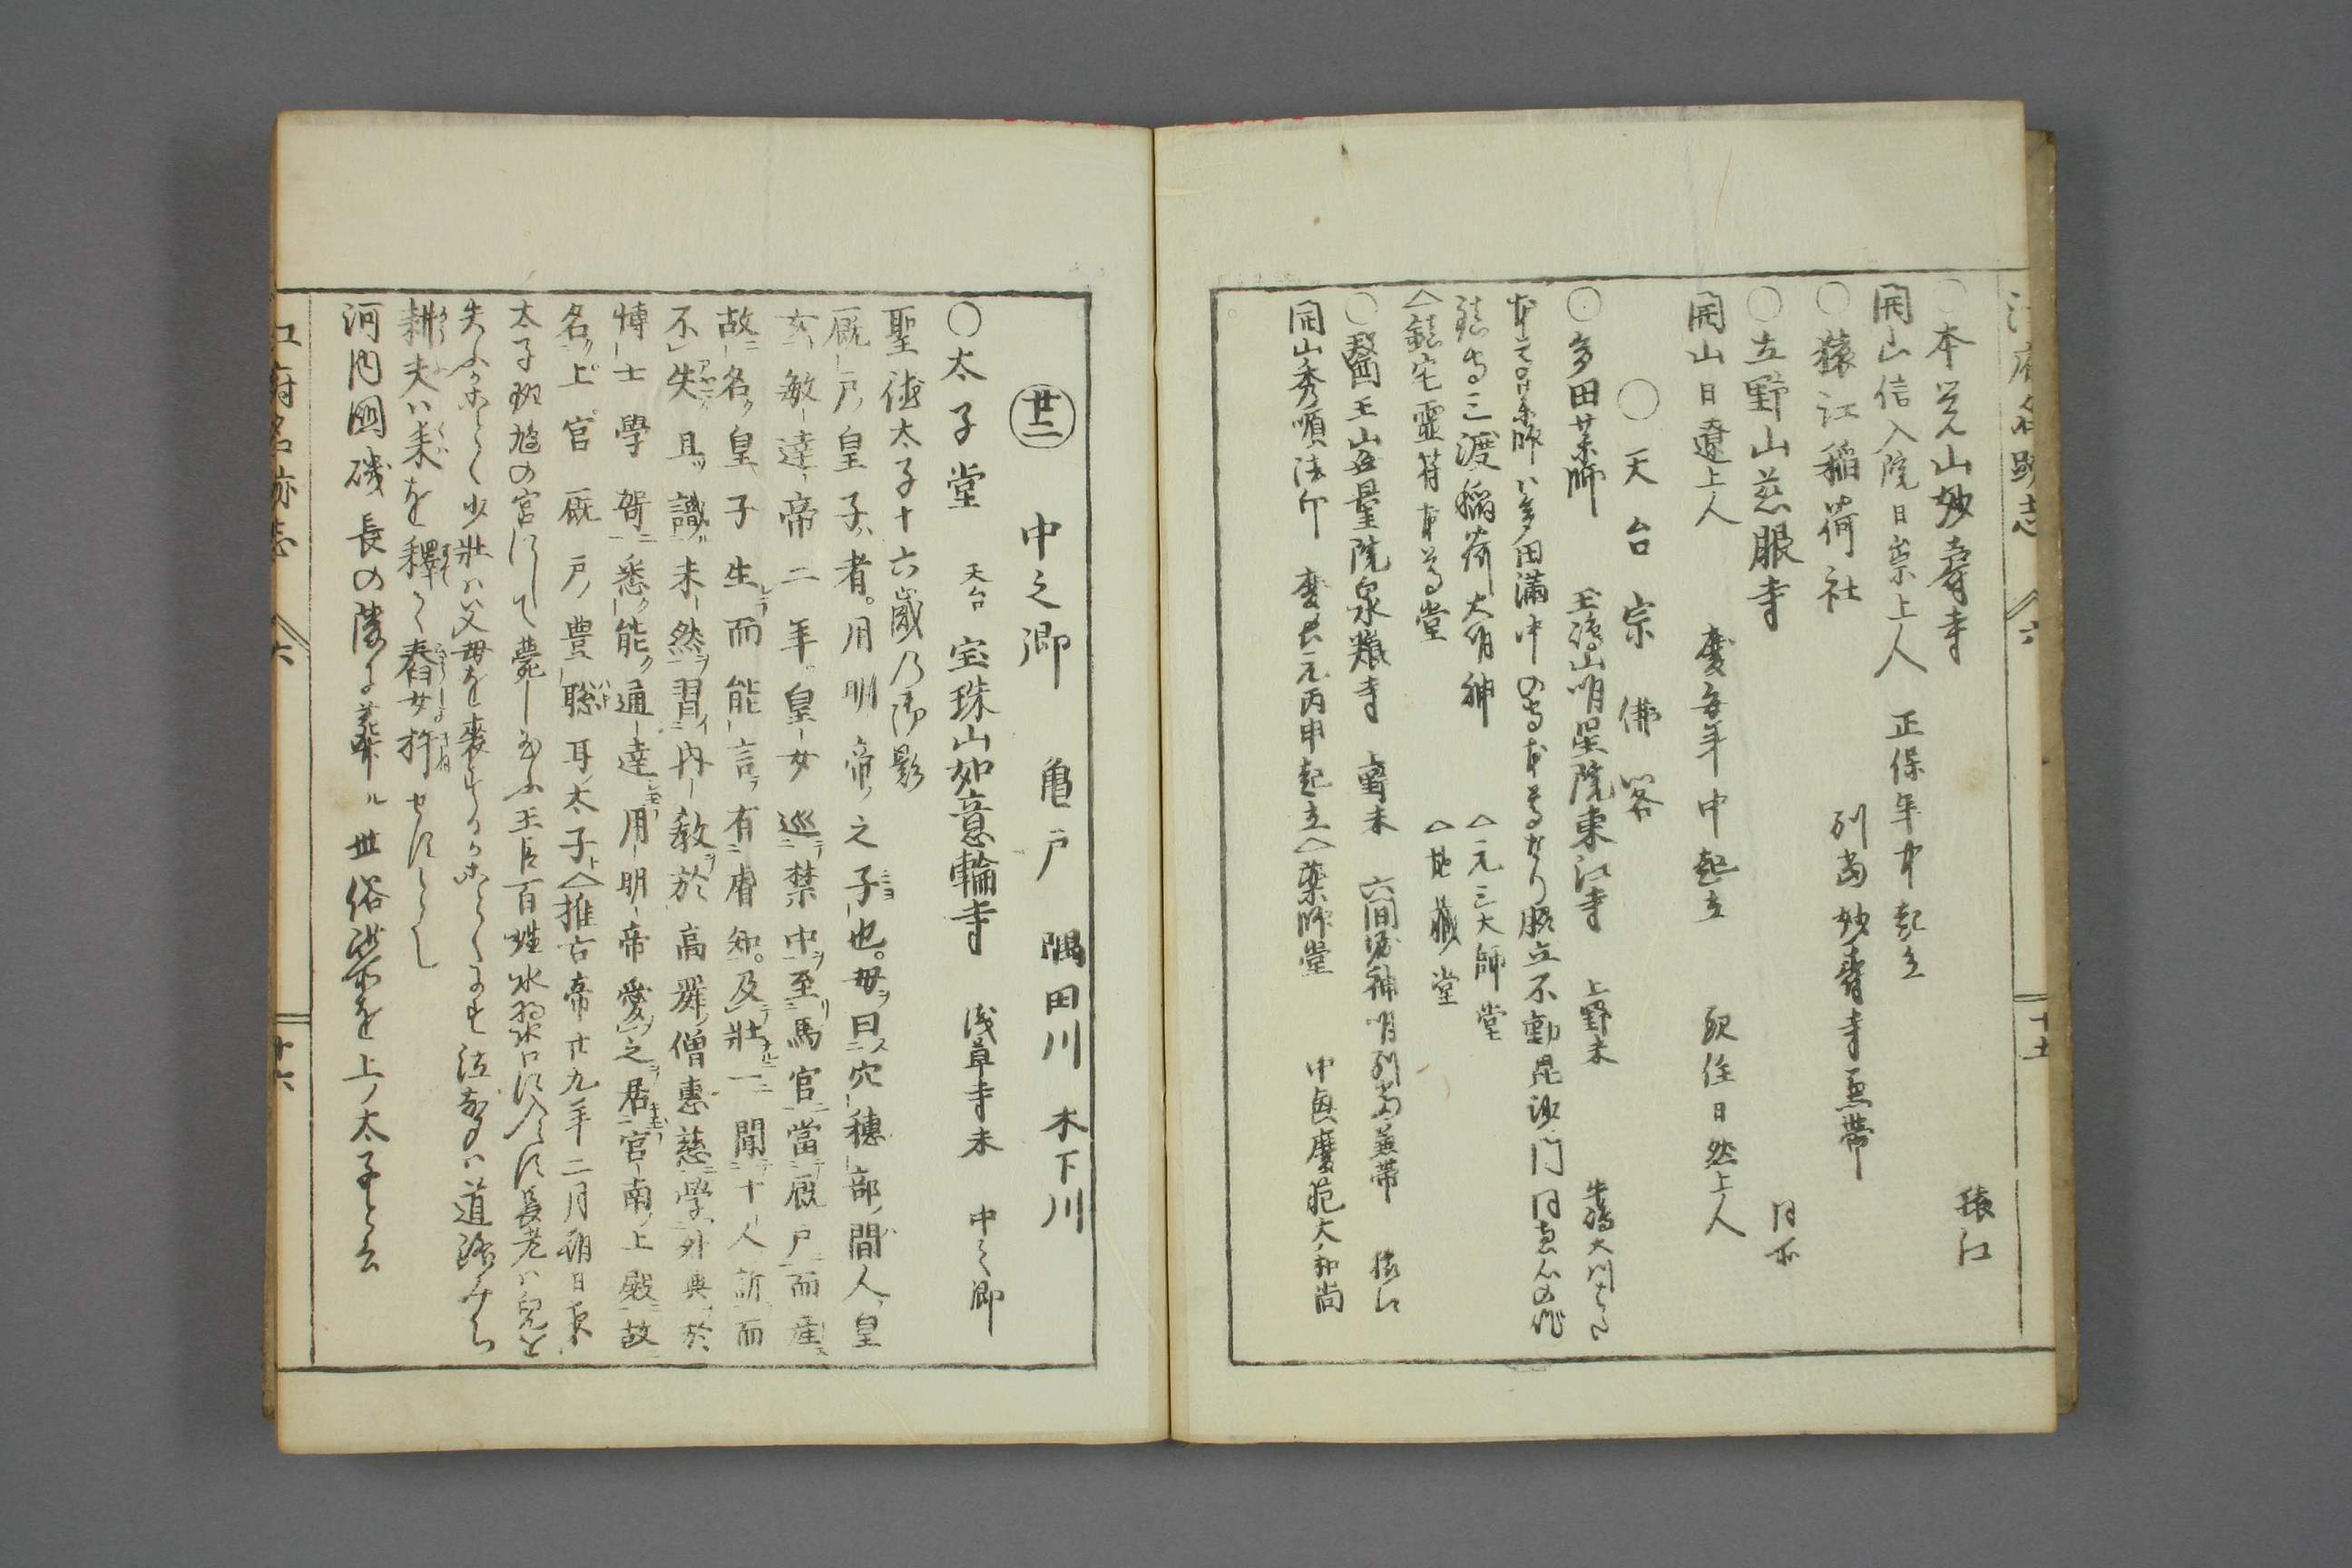 江府名跡志 六 十五
○本覚山妙寿寺 猿江
開山信入院日崇上人 正保年中起立
○猿江稲荷社 別当妙寿寺兼帯
○立野山慈眼寺 同所
開山日遼上人 慶安年中起立 現住日然上人
○天台宗 佛閣
○多田薬師 玉嶋山明星院東江寺 上野末 牛嶋大川はた
本尊薬師ハ多田満仲の守本尊なり脇立不動毘沙門同恵心の作
鎮守三渡稲荷大明神 △元三大師堂
△鎮宅霊符本尊堂 △地藏堂
○醫王山無量院泉蔵寺 末 六間堀神明別当兼帯 猿江
開山秀順法印 慶長元丙申起立△薬師堂 中興慶範大和尚
廿二 中之郷 亀戸 隅田川 木下川
○太子堂 天台 宝珠山如意輪寺 浅草寺末 中之郷
聖徳太子十六歳乃御影
厩戸皇子者。用明帝之子也。母曰穴穂部間人皇
女敏達帝二年。皇女巡禁中至馬官當厩戸而産
故名皇子生而能言有睿知。及壮一聞十人訴而
不失且識未然習内教於高麗僧惠慈學外典於
博士學哿悉能通達用明帝愛之居宮南上殿故
名上宮厩戸豊聡耳太子△推古帝廿九年二月朔日夜
太子斑鳩の宮にして薨し玉ふ王臣百姓水漿口に入らす長老ハ児を
失ふかことく少壮ハ父母を喪するかことくにして泣声ハ道路にみち
耕夫ハ耒を釋て舂女杵セすけらし
河内國磯長の陵に葬ル世俗御廟を上ノ太子と云
江府名跡志 六 十六